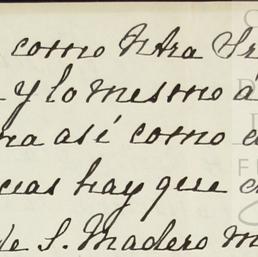 como Ntra Sr
y lo mesmo á
ra así como e
cias hay que c
de S. Madero m